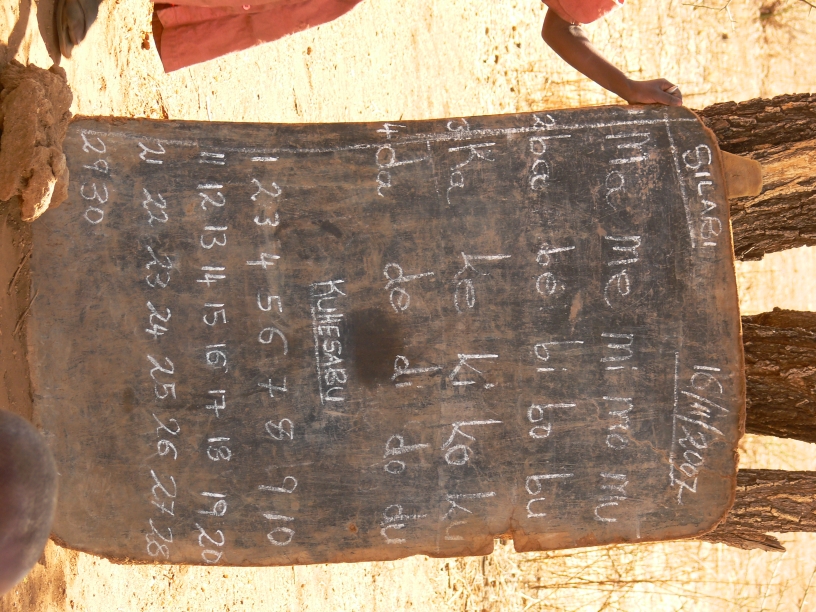 SILABI 16/11/2007
Ma me mi mo mu
2 ba be bi bo bu
3 Ka ke ki ko ku
4 da de di do du
KUHESABU
1 2 3 4 5 6 7 8 9 10
11 12 13 14 15 16 17 18 19 20
21 22 23 24 25 26 27 28
29 30